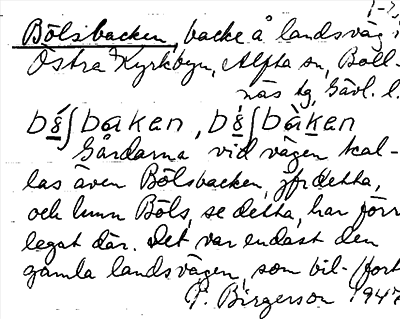 Bölsbacken, backe å landsväg i
Östra Kyrkbyn, Alfta sn, Boll-
näs tg, Gävl. l.
bö̀ʃbaken, bö̀ʃbàken
Gårdarna vid vägen kal-
las även Bölsbacken, jfr detta,
och hunn Böls, se detta, har förr
legat där. Det var endast den
gamla landsvägen, som bil- (fort
P. Birgerson 194